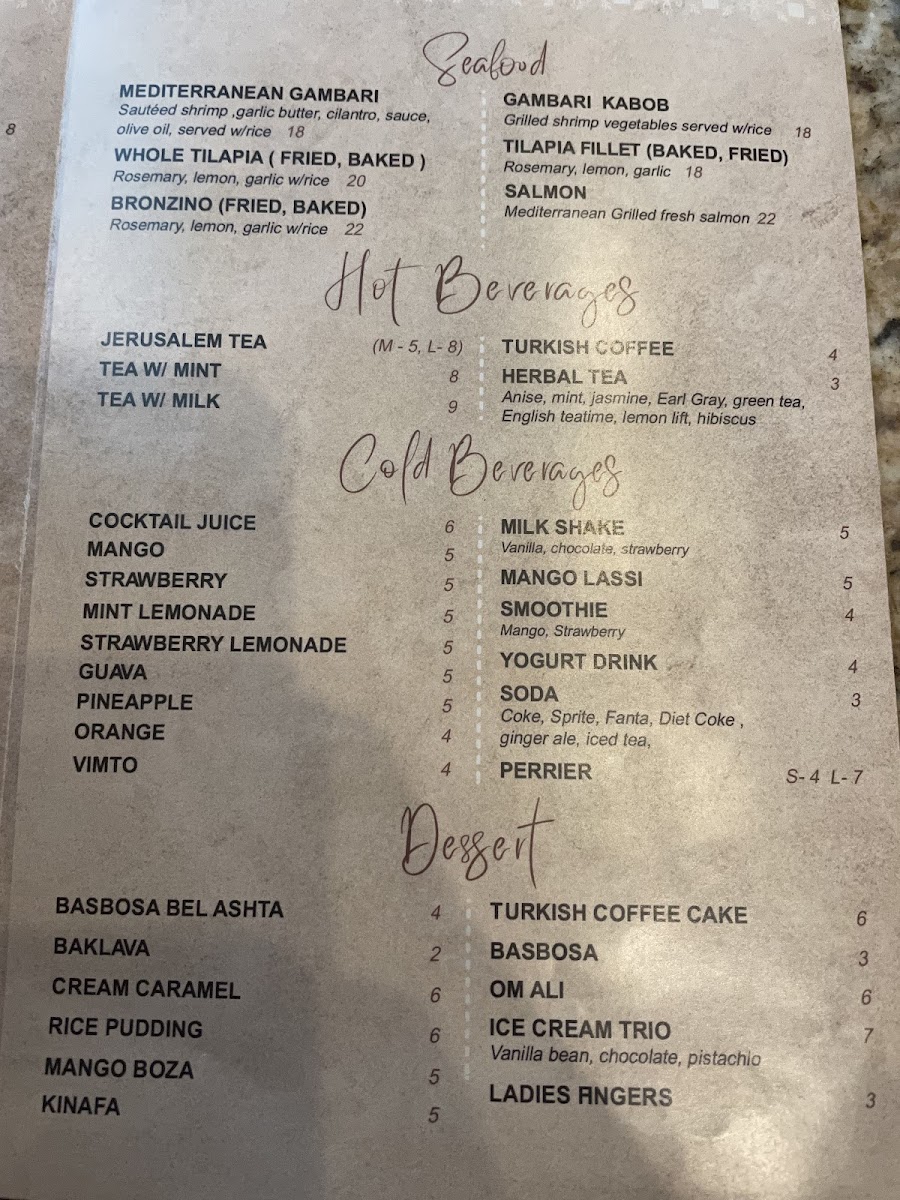 8
Seafood
MEDITERRANEAN GAMBARI
Sautéed shrimp ,garlic butter, cilantro, sauce,
olive oil, served w/rice 18
WHOLE TILAPIA ( FRIED, BAKED )
Rosemary, lemon, garlic w/rice 20
BRONZINO (FRIED, BAKED)
Rosemary, lemon, garlic w/rice 22
GAMBARI KABOB
Grilled shrimp vegetables served w/rice 18
TILAPIA FILLET (BAKED, FRIED)
Rosemary, lemon, garlic 18
SALMON
Mediterranean Grilled fresh salmon 22
Hot Beverages
JERUSALEM TEA (M - 5, L- 8)
TEA W/ MINT 8
TEA W/ MILK 9
TURKISH COFFEE 4
HERBAL TEA 3
Anise, mint, jasmine, Earl Gray, green tea,
English teatime, lemon lift, hibiscus
Cold Beverages
COCKTAIL JUICE 6
MANGO 5
STRAWBERRY 5
MINT LEMONADE 5
STRAWBERRY LEMONADE 5
GUAVA 5
PINEAPPLE 5
ORANGE 4
VIMTO 4
MILK SHAKE 5
Vanilla, chocolate, strawberry
MANGO LASSI 5
SMOOTHIE 4
Mango, Strawberry
YOGURT DRINK 4
SODA 3
Coke, Sprite, Fanta, Diet Coke ,
ginger ale, iced tea,
PERRIER S- 4 L- 7
Dessert
BASBOSA BEL ASHTA 4
BAKLAVA 2
CREAM CARAMEL 6
RICE PUDDING 6
MANGO BOZA 5
KINAFA 5
TURKISH COFFEE CAKE 6
BASBOSA 3
OM ALI 6
ICE CREAM TRIO 7
Vanilla bean, chocolate, pistachio
LADIES FINGERS 3